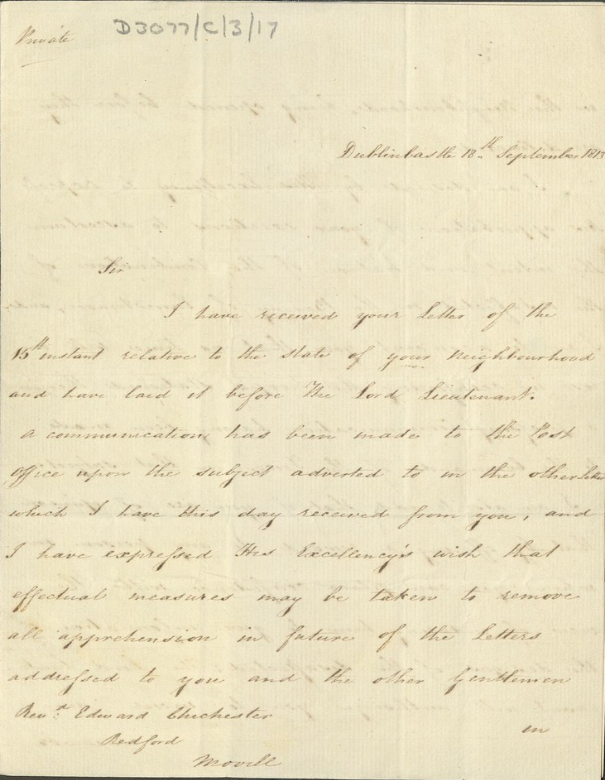 Private
D3077/C/3/17
Dublin Castle 18th September 1813
Sir
I have received your Letter of the
15th instant relative to the state of your Neighbourhood
and have laid it before The Lord Lieutenant.
a communication has been made to the Post
office upon the subject adverted to in the other Letter
which I have this day received from you, and
I have expressed His Excellency's wish that
effectual measures may be taken to remove
all apprehension in future of the Letters
addressed to you and the other Gentlemen
Revd. Edward Chichester
in
Redford
Movill